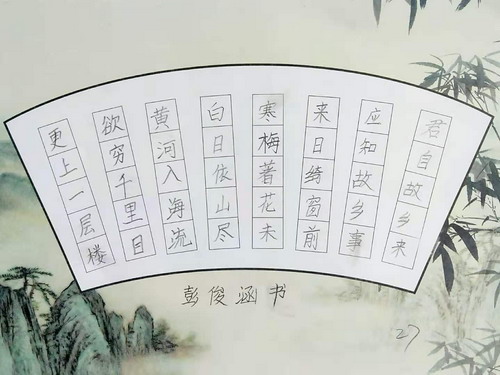 君自故乡来
应知故乡事
来日绮窗前
寒梅著花未
白日依山尽
黄河入海流
欲穷千里目
更上一层楼
彭俊涵书
27